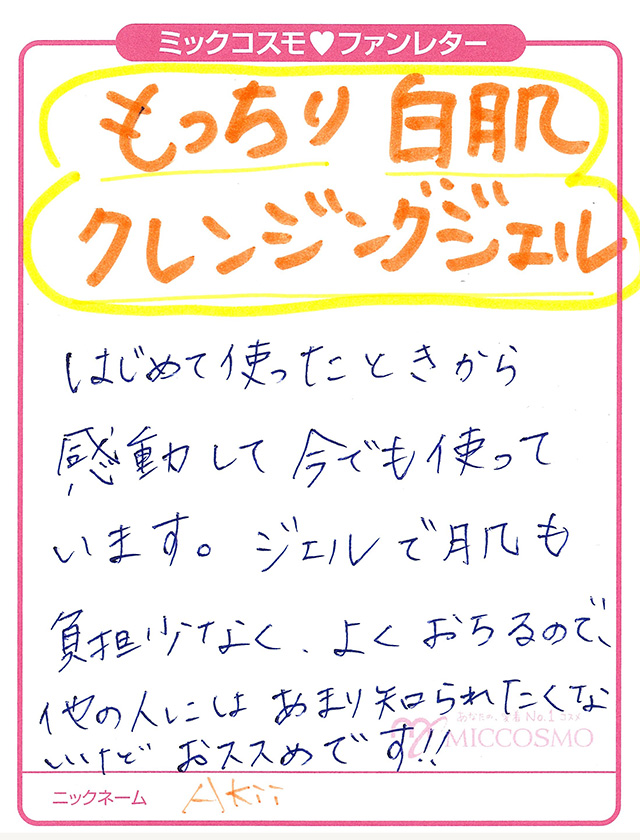 ミックコスモ♥ファンレター
もっちり 白肌
クレンジングジェル
はじめて使ったときから
感動して今でも使って
います。ジェルで肌も
負担少なく、よくおちるので、
他の人にはあまり知られたくな
いけどおススメです!!
あなたの、定番No.1コスメ
MICCOSMO
ニックネーム Akii